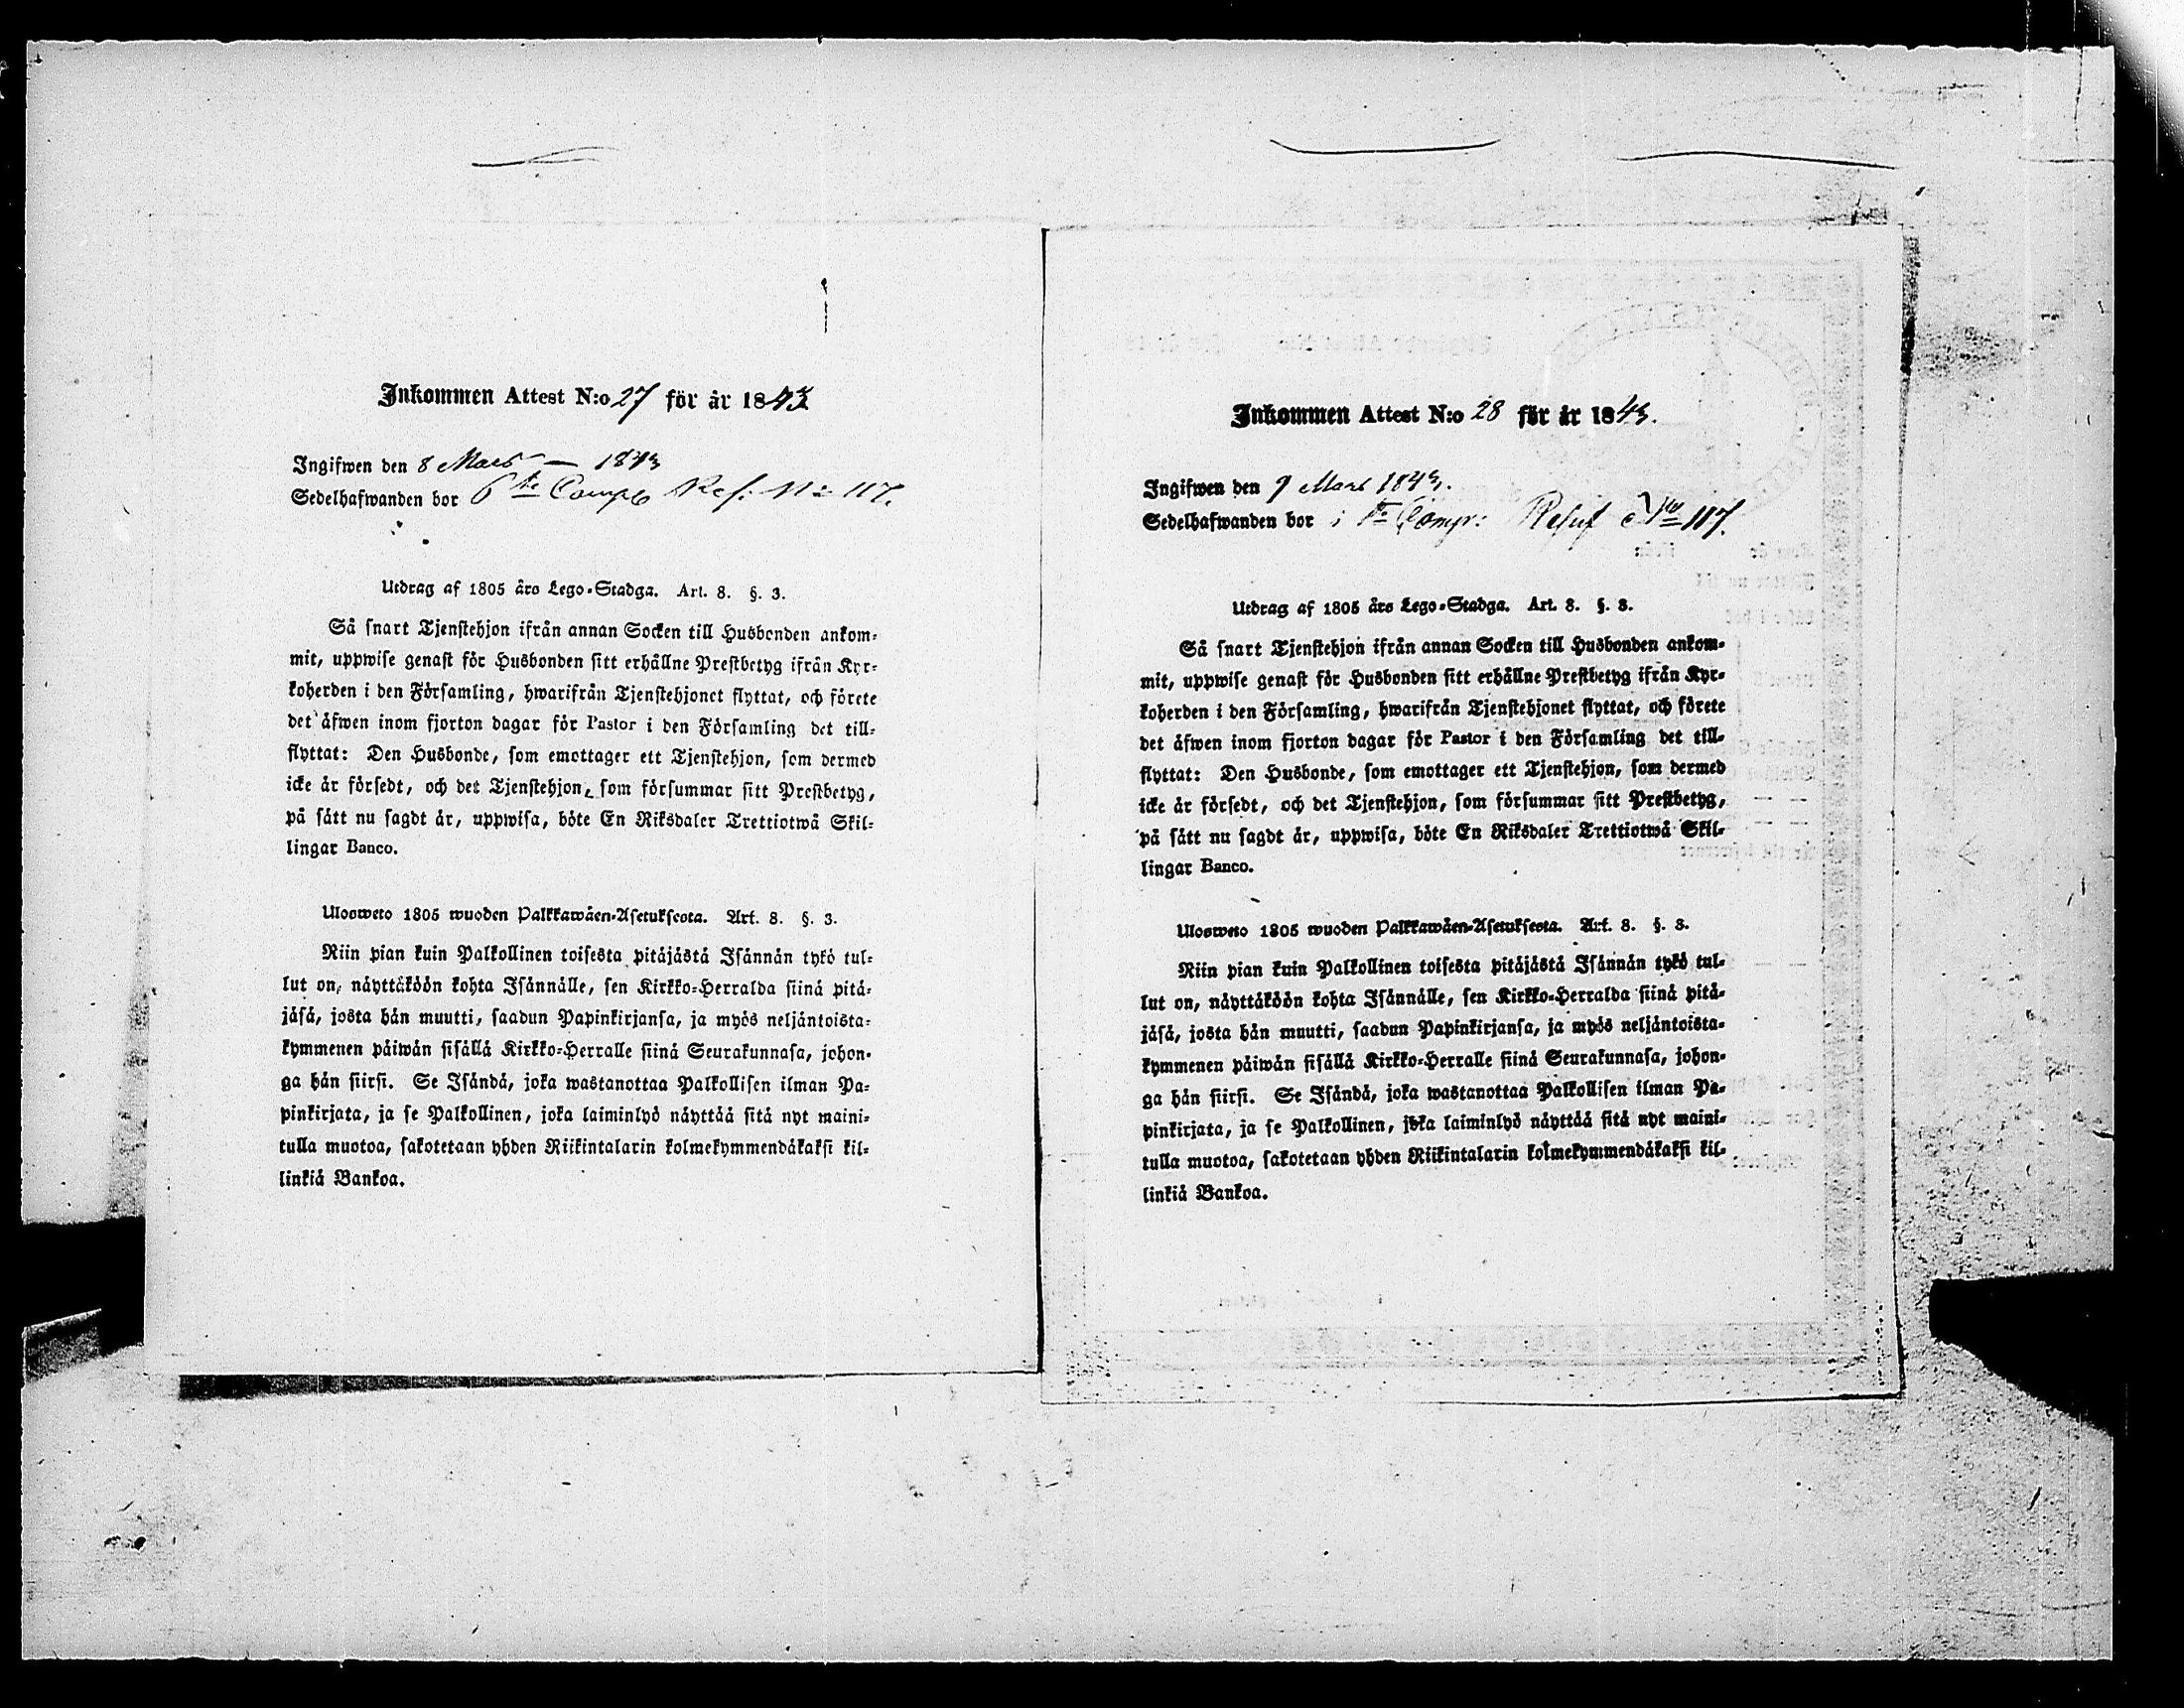 Inkommen Attest N:o 27 för år 1843
Ingifwen den 8 Mars — 1843
Sedelhafwanden bor 6te Comp Ref. No 117.
Utdrag af 1805 års Lego-Stadga. Art. 8. §. 3.
Så snart Tjenstehjon ifrån annan Socken till Husbonden ankom-
mit, uppwise genast för Husbonden sitt erhållne Prestbetyg ifrån Kyr-
koherden i den Församling, hwarifrån Tjenstehjonet flyttat, och förete
det äfwen inom fjorton dagar för Pastor i den Församling det till-
flyttat: Den Husbonde, som emottager ett Tjenstehjon, som dermed
icke är försedt, och det Tjenstehjon, som försummar sitt Prestbetyg,
på sätt nu sagdt är, uppwisa, böte En Riksdaler Trettiotwå Skil-
lingar Banco.
Ulosweto 1805 wuoden Palkkawäen-Asetuksesta. Art. 8. §. 3.
Niin pian kuin Palkollinen toisesta pitäjästä Isännän tykö tul-
lut on, näyttäköön kohta Isännälle, sen Kirkko-Herralda siinä pitä-
jäsä, josta hän muutti, saadun Papinkirjansa, ja myös neljäntoista-
kymmenen päiwän sisällä Kirkko-Herralle siinä Seurakunnasa, johon-
ga hän siirsi. Se Isändä, joka wastanottaa Palkollisen ilman Pa-
pinkirjata, ja se Palkollinen, joka laiminlyö näyttää sitä nyt maini-
tulla muotoa, sakotetaan yhden Riikintalarin kolmekymmendäkaksi kil-
linkiä Bankoa.
Inkommen Attest N:o 28 för år 1843.
Ingifwen den 9 Mars 1843.
Sedelhafwanden bor i Comp: No 117.
Utdrag af 1805 års Lego-Stadga. Art. 8. §. 3.
Så snart Tjenstehjon ifrån annan Socken till Husbonden ankom-
mit, uppwise genast för Husbonden sitt erhållne Prestbetyg ifrån Kyr-
koherden i den Församling, hwarifrån Tjenstehjonet flyttat, och förete
det äfwen inom fjorton dagar för Pastor i den Församling det till-
flyttat: Den Husbonde, som emottager ett Tjenstehjon, som dermed
icke är försedt, och det Tjenstehjon, som försummar sitt Prestbetyg,
på sätt nu sagdt är, uppwisa, böte En Riksdaler Trettiotwå Skil-
lingar Banco.
Ulosweto 1805 wuoden Palkkawäen-Asetuksesta. Art. 8. §. 3.
Niin pian kuin Palkollinen toisesta pitäjästä Isännän tykö tul-
lut on, näyttäköön kohta Isännälle, sen Kirkko-Herralda siinä pitä-
jäsä, josta hän muutti, saadun Papinkirjansa, ja myös neljäntoista-
kymmenen päiwän sisällä Kirkko-Herralle siinä Seurakunnasa, johon-
ga hän siirsi. Se Isändä, joka wastanottaa Palkollisen ilman Pa-
pinkirjata, ja se Palkollinen, joka laiminlyö näyttää sitä nyt maini-
tulla muotoa, sakotetaan yhden Riikintalarin kolmekymmendäkaksi kil-
linkiä Bankoa.